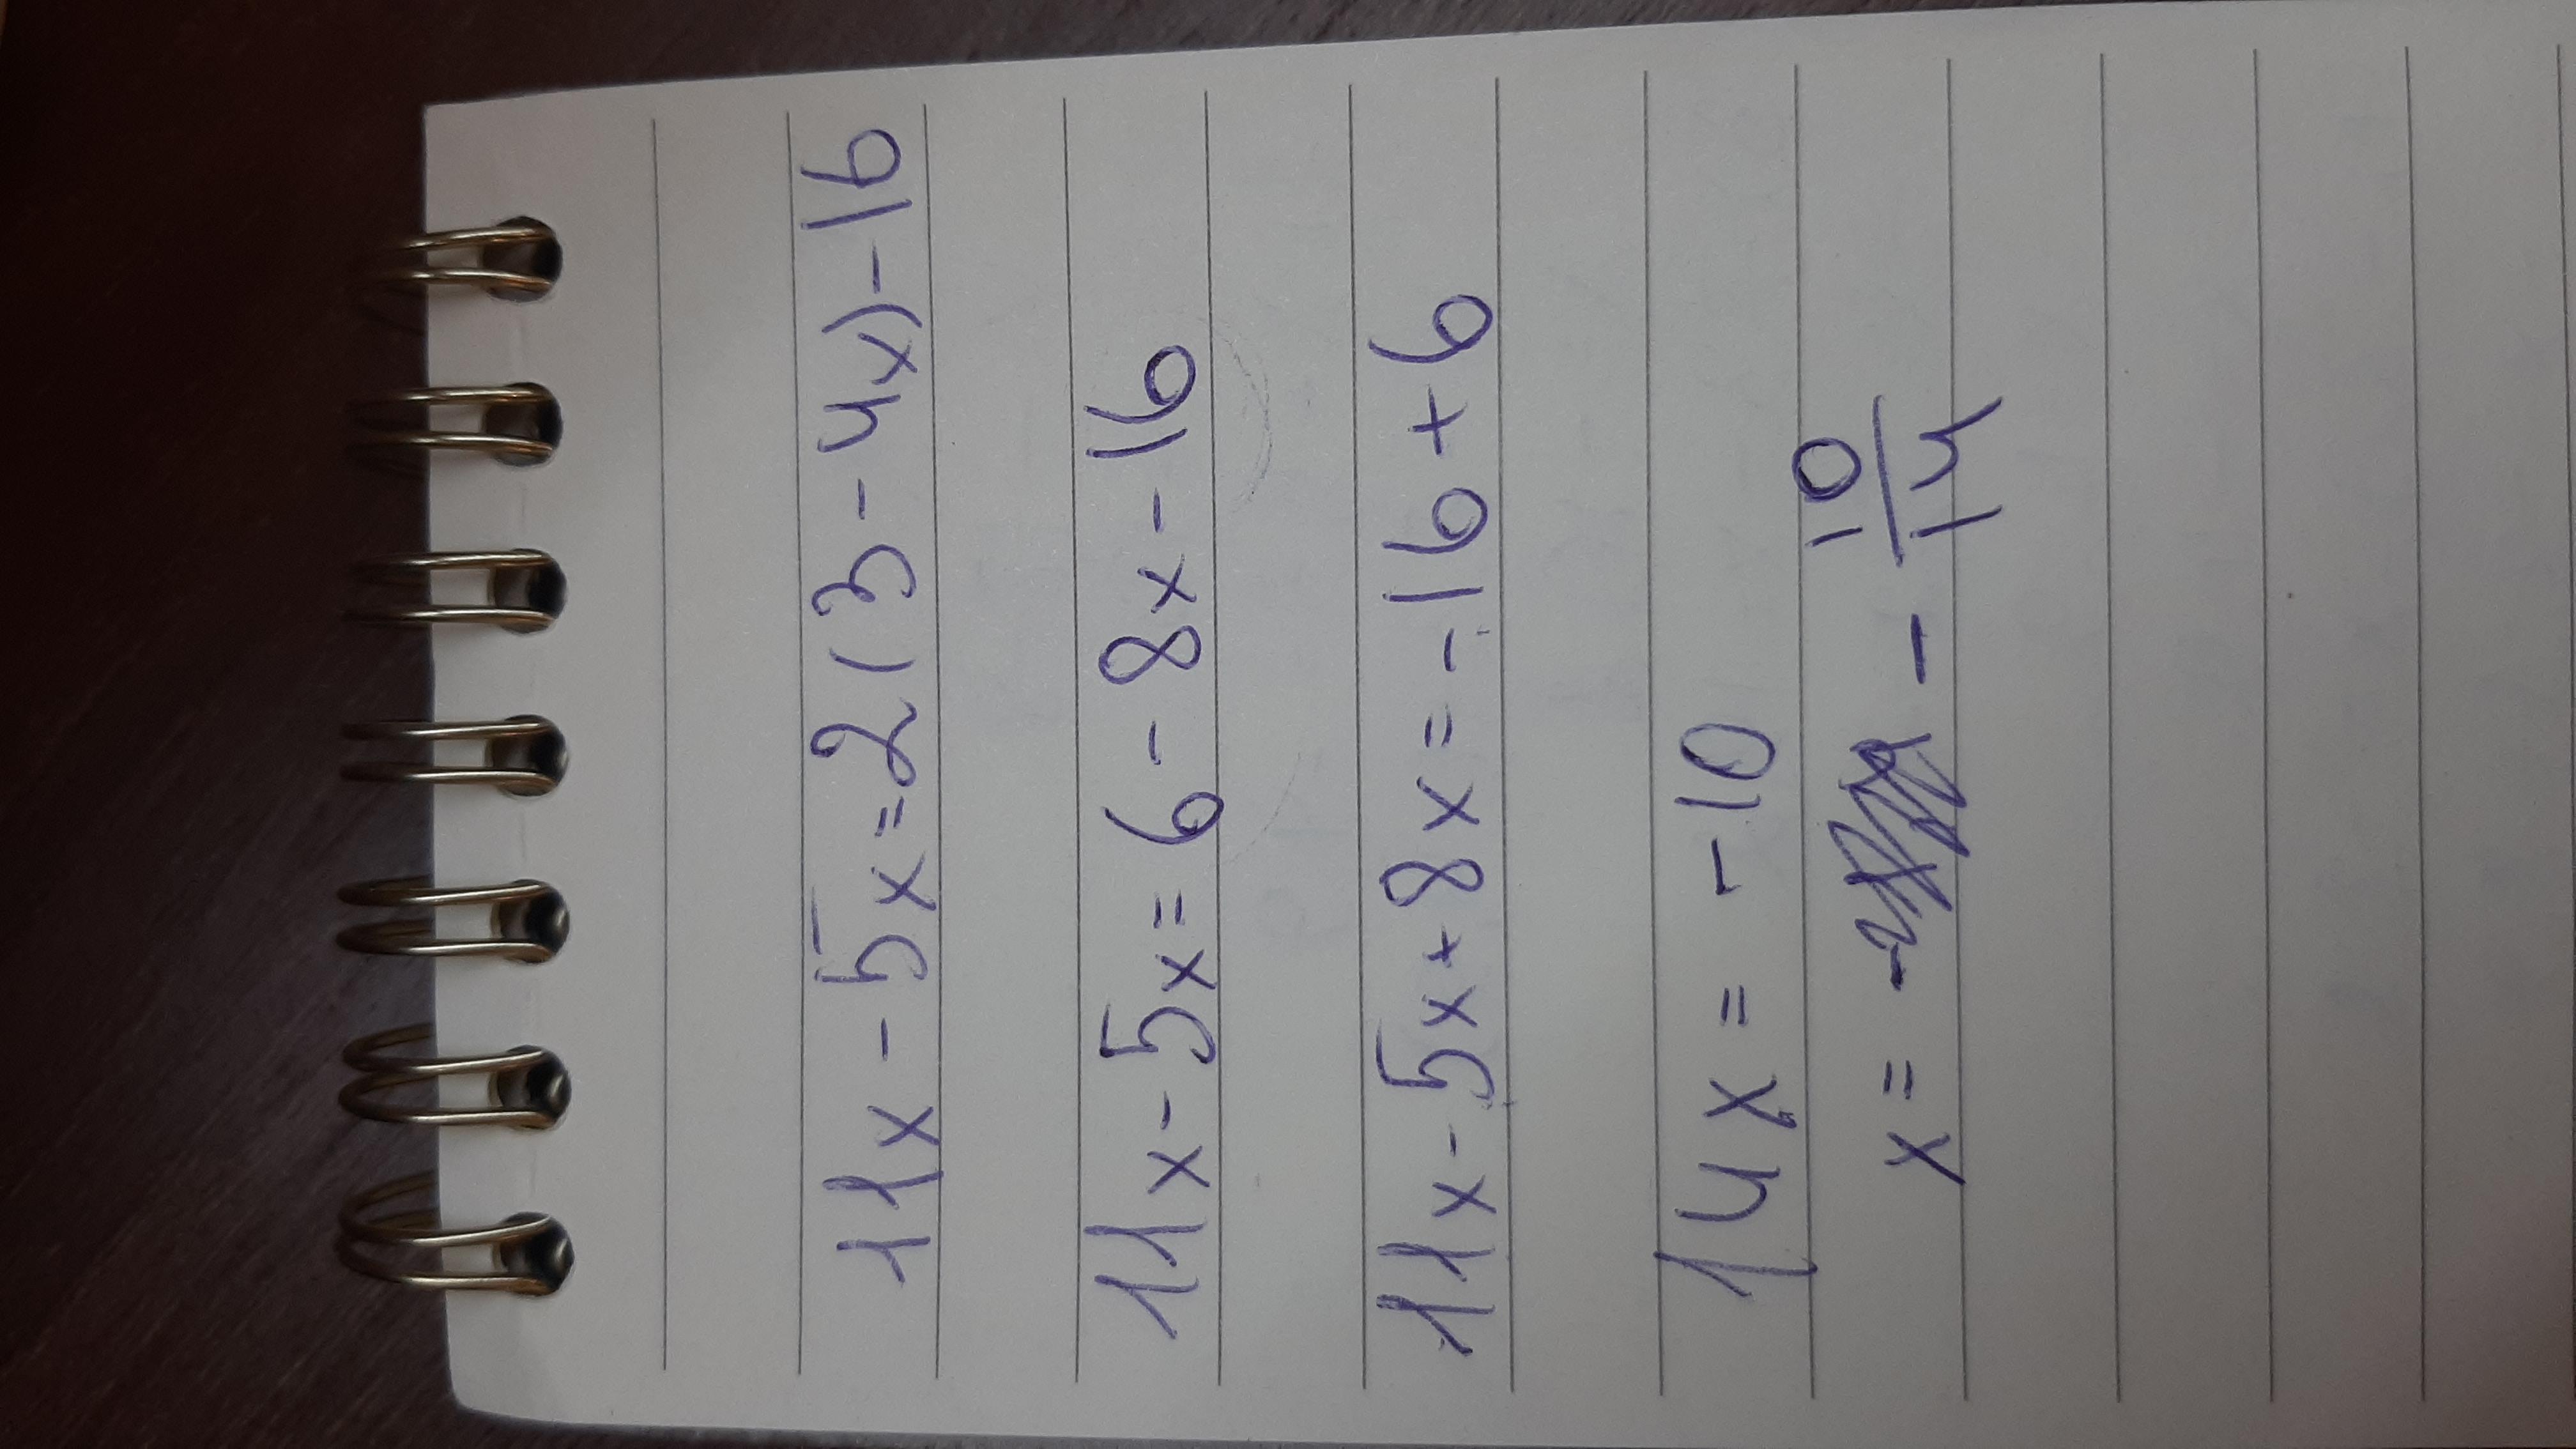 11x - 5x = 2(3 - 4x) - 16
11x - 5x = 6 - 8x - 16
11x - 5x + 8x = - 16 + 6
14x = - 10
x = - - 10/14